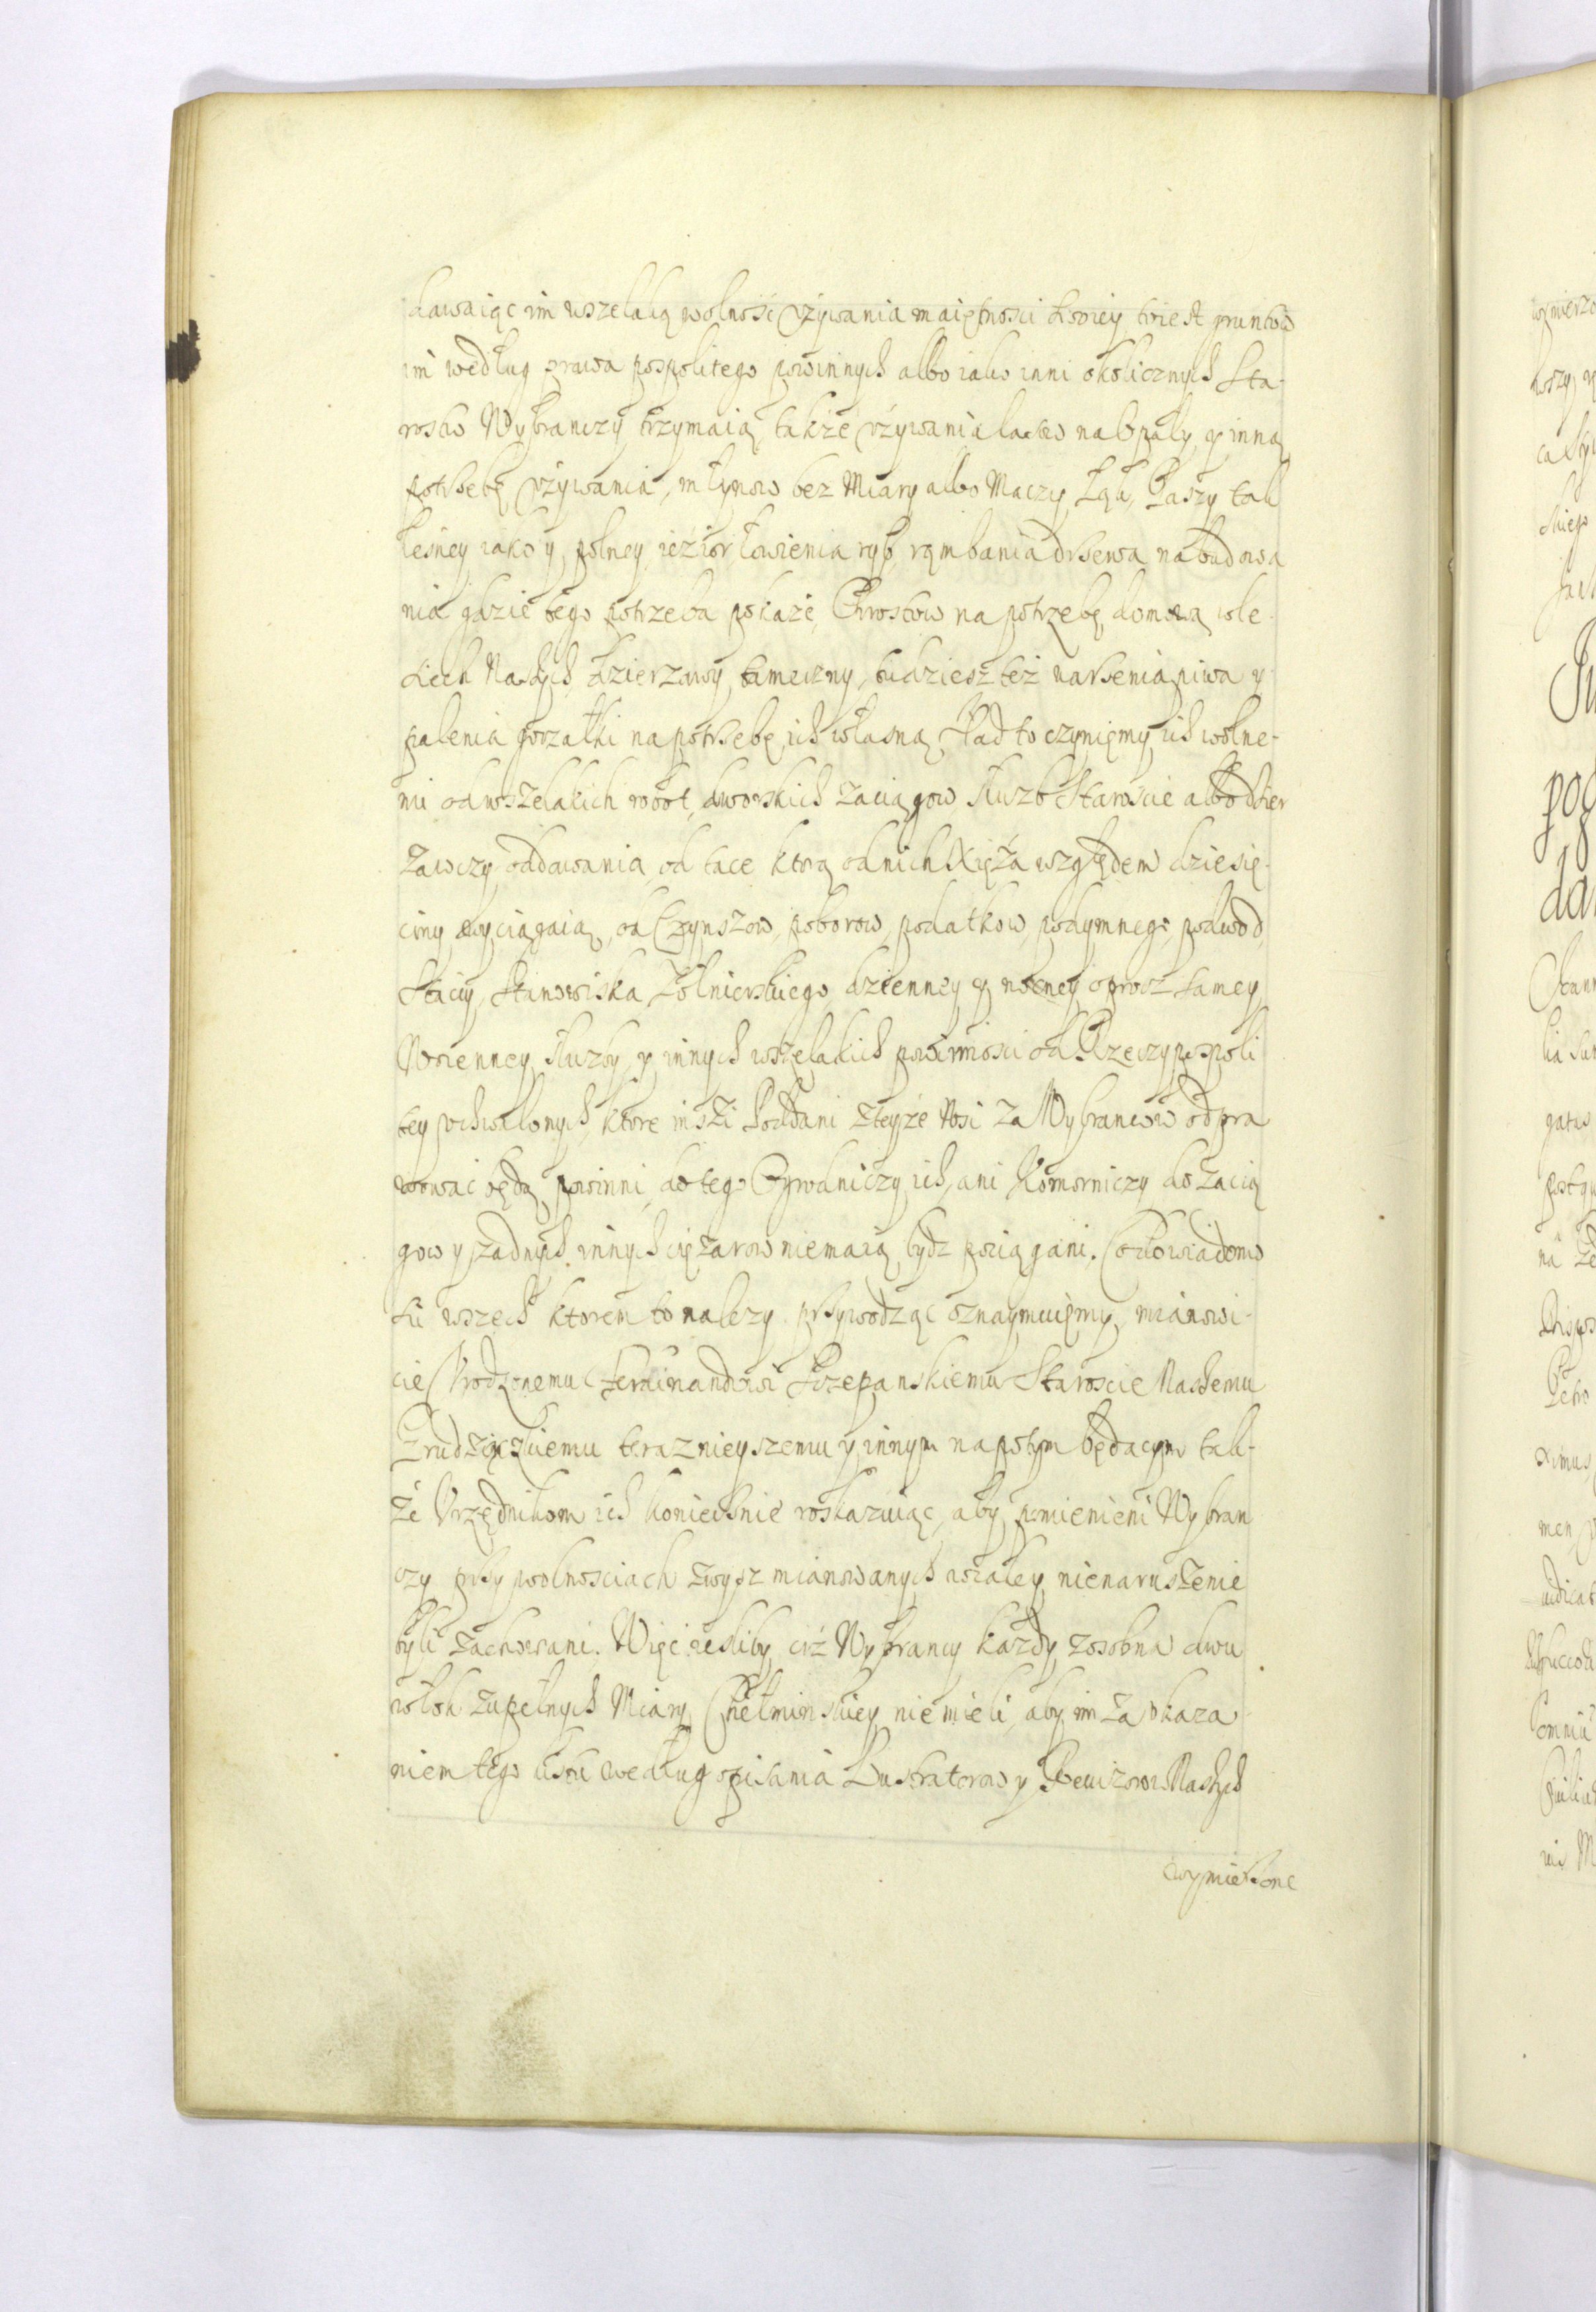 dawaiąc im wszelaką wolnosc vżywania maiętnosci swoiey to iest gruntow
im według prawa pospolitego powinnych albo iako inni okolicznych Sta-
rostw Wybranczy trzymaią, także vżywania lasow na Opały, y inną
potrsebę vżywania, młynow bez Miary albo Maczy Łąk, Paszy tak
leśney iako y polney, ieźior łowienia ryb, rąmbania drsewa na budowa
nia gdzie tego potrzeba pokaże, Chrostow na potrzebę domową w le-
siech Naszych dzierzawy tameczny, tudziesz też warsenia piwa y
palenia gorzałki na potrsebę ich własną. Nad to czynięmy ich wolne-
mi od wszelakich robot, dworskich zaciągow, słuzb Staroscie albo dzier
zawczy oddawania, od tace ktorą od nich Xięża względem dziesię-
ciny wyciągaią, od Czynszow, poborow, podatkow, podymnego, podwod,
Staciy, Stanowiska Żołnierskiego, dzienney y nocney oprocz samey
Woienney słuzby y innych wszelakich powinnosci od Rzeczypospoli
tey vchwalonych, ktore inszi Poddani zteyże Wsi za Wybrancow odpra
wowac będą powinni, do tego Czynowniczy ich, ani Komorniczy do zacią
gow y zadnych innych cięzarow nie maią bydz pociągani. Co do wiadomo
sci wszech ktorem to nalezy przywodząc oznaymuięmy, mianowi-
cie Vrodzonemu Ferdinandowi Szczepanskiemu Staroscie Naszemu
teraznieyszemu y innym napotym będącym tak-
że Vrzędnikom ich koniecsnie roskazuiąc, aby pomienieni Wybran
czy przy wolnosciach zwysz mianowanych wcaley nienaruszenie
byli zachowani. Więc iesliby ciż Wybrancy kazdy zosobna dwu
włok zupełnych Miary Chełminskiey nie mieli, aby im za okaza-
niem tego listu według opisania Lustratorow y Rewizorow Naszych
wymierzone